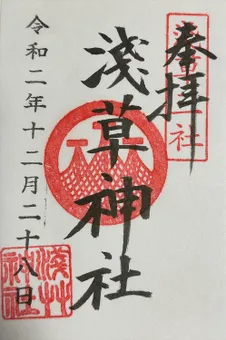 奉拝
淺草神社
令和二年十二月二十八日
淺艸
神社